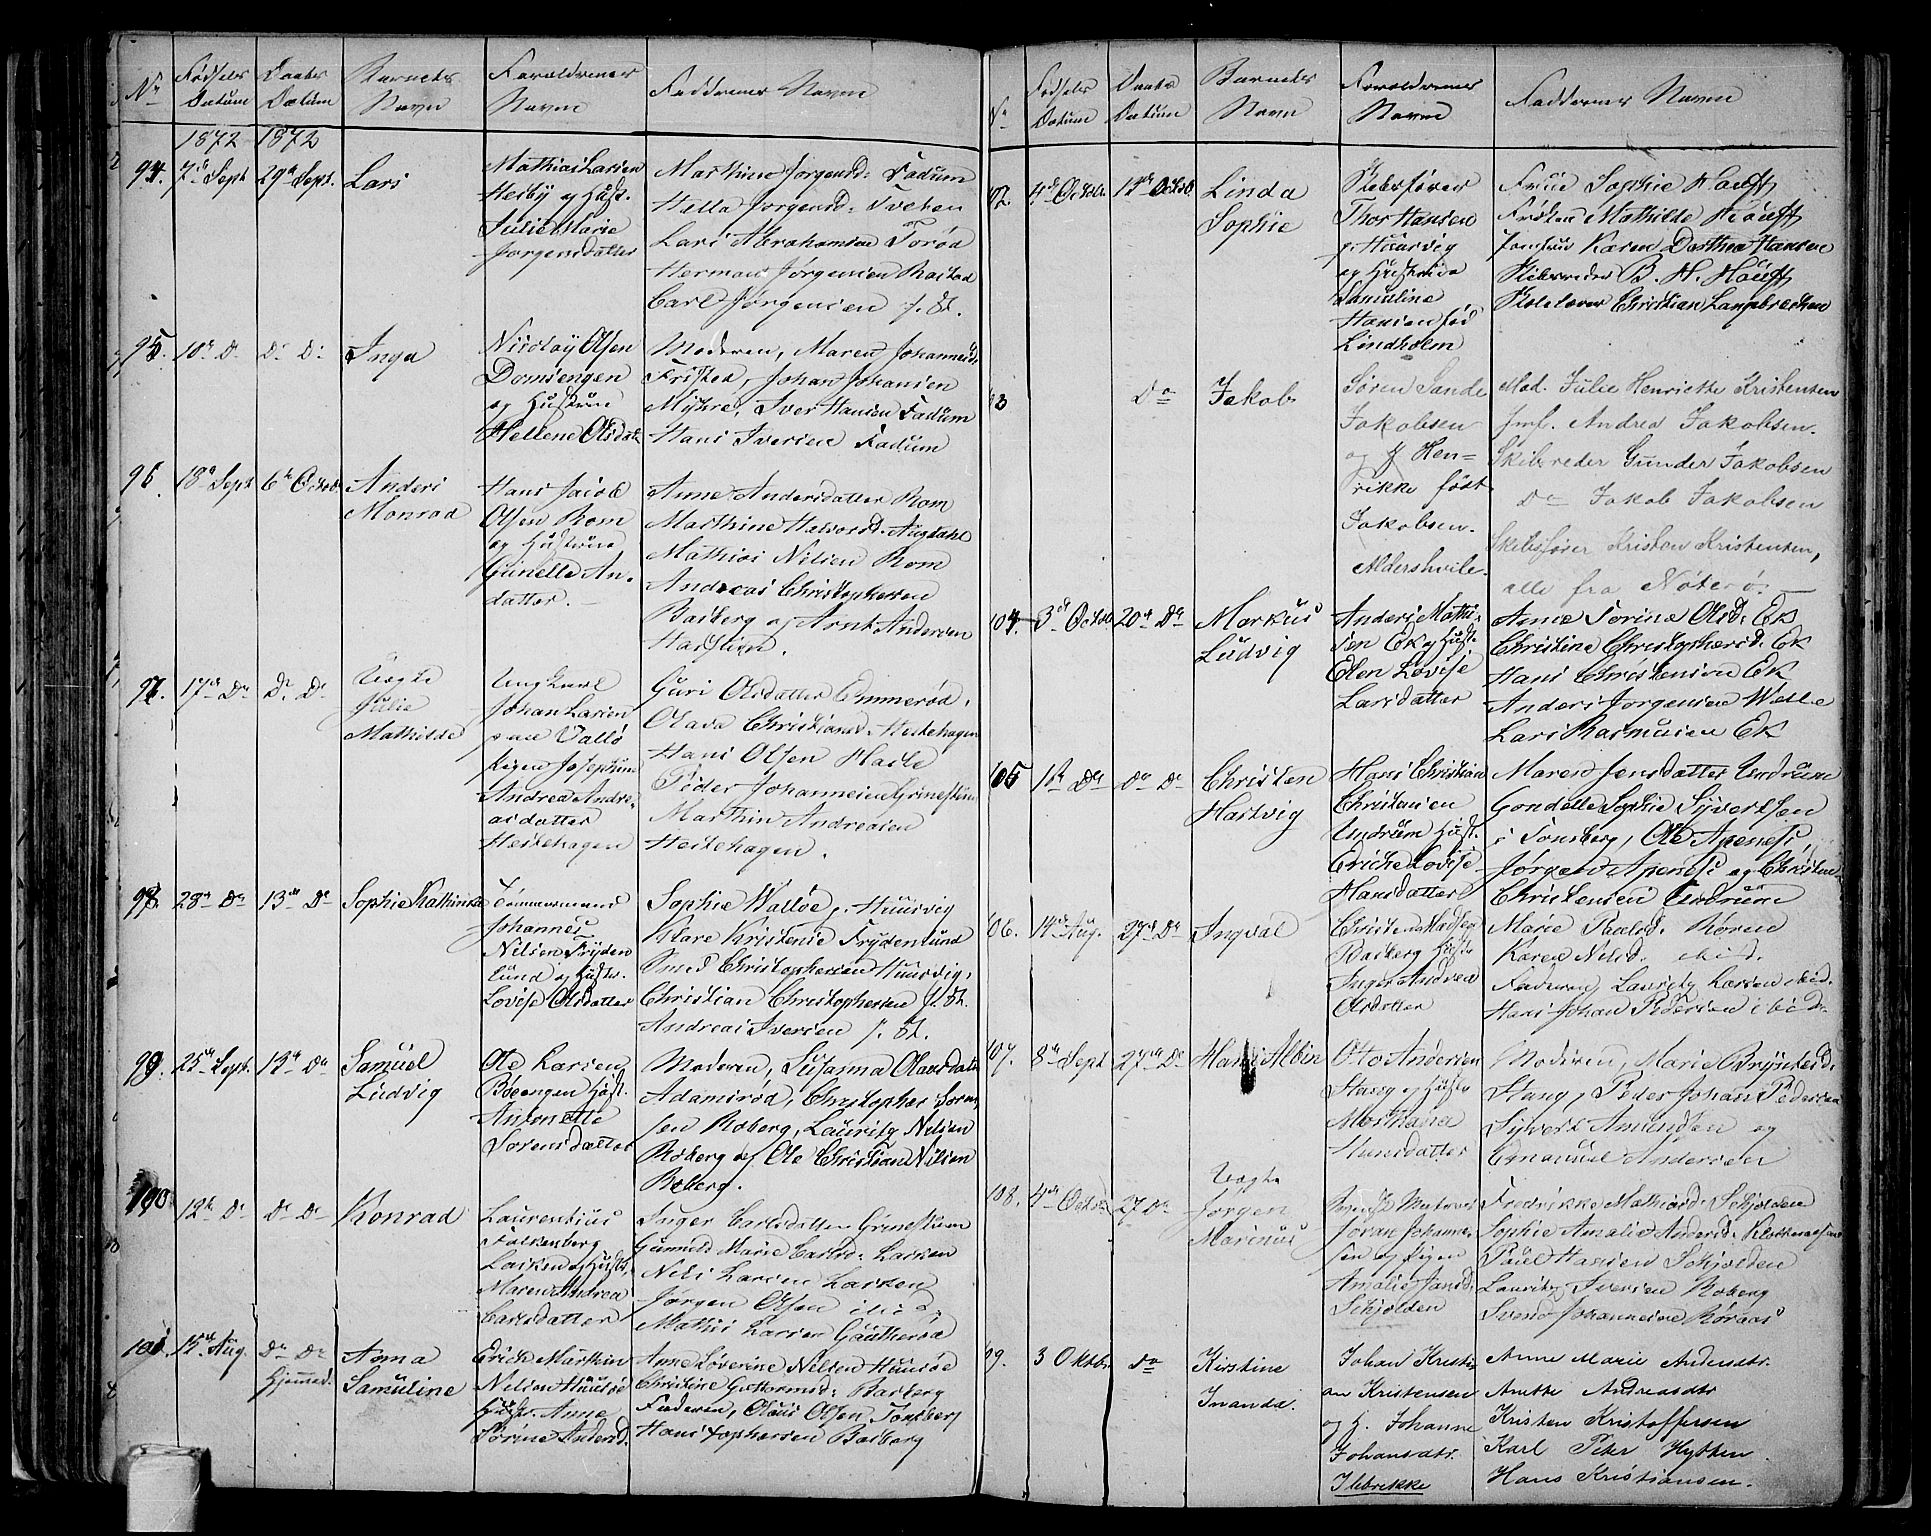 Nr
Fødsels Datum
Daabs Datum
Barnets Navn
Forældrenes Navne
Faddernes Navne
1872 1872
94. 7de Sept 29de Sept. Lars
Mathias Larsen
Hesby og Hust.
Julie Marie
Jørgensdatter
Marthine Jørgensd: Fadum
Hella Jørgensd:
Lars Abrahamsen Torød
Herman Jørgensen Rastad
Carl Jørgensen
95. 10de Do Do Do Inga
Nicolay Olsen
Domsengen
og Hustrue
Hellene Olsdat:
Moderen, Maren Johannesd:
Fristed, Johan Johansen
Myhre, Iver Hansen Fadum
Hans Iversen Fadum
96. 18de Sept 6te Octob. Anders
Monrad
Hans Jacob
Olsen Rom
og Hustrue
Grinelle An-
datter.
Anne Andersdatter Rom
Marthine Halvorsd. Augdahl
Mathias Nilsen Rom
Andreas Christophersen
Basberg og Arnt Andersen
97. 17de Do Do Do Uægte
Julie
Mathilde
Ungkarl
Johan Larsen
paa Vallø
Pigen Josephine
Andrea Andre-
asdatter
Hestehagen
Guri Olsdatter Emmerød,
Olava Christiansd: Hestehagen
Hans Olsen Hasle
Peder Johannesen Grinestuen
Marthin Andreasen
Hestehagen.
98. 28de Do 13de Do Sophie Kathinka
Tømmermand
Johannes
Nilsen Fryden
lund og Hust.
Lovise Olsdatter
Sophie Walløe p. Huusvig
Klare Kristense Frydenlund
Smed Christophersen Huusvig,
Christian Christophersen
Andreas Iversen
99. 25de Sept. 13de Do Samuel
Ludvig
Ole Larsen
Bøeengen Hust.
Antonette
Sørensdatter
Moderen, Susanna Olausdatt
Adamsrød, Christopher Søren-
sen Roberg, Lauritz Nilsen
Roberg og Ole Christian Nilsen
Roberg.
100. 12te Do Do Do Konrad
Laurentius
Falkenberg
Larsen og Hust.
Maren Andrea
Carlsdatter
Inger Carlsdatter Grinestuen
Gunnild Marie Carlsd:
Nils Larsen
Jørgen Olsen ibid
Mathis Larsen Gautherød
101. 15de Aug. Do Do
Hjemmed.
Anna
Samuline
Erich Marthin
Nilsen Huusøe
Hust. Anne
Sørine Andersd.
Anne Severine Nilsen Huusøe
Christine Guttormsd: Basberg
Faderen, Olaus Olsen Tønsberg
Hans Basberg
Nr
Fødsels Datum
Daabs Datum
Barnets Navn
Forældrenes Navne
Faddernes Navne
102. 4de Octob. 13de Octob Linda
Sophie
Skibsfører
Thor Hansen
p. Huusvig
og Hustrue
Samuline
Hansen fød
Lindholm
Frue Sophie Hauff
Frøken Mathilde Hauff
Jomfru Karen Dorthea Hansen
Skibsreder B. H. Hauff
Christian Lambrechsen
03 Do Jakob
Søren Sande
Jakobsen
og H Hen-
rikke født
Jakobsen.
Aldershvile.
Mad. Julie Henriette Kristensen
Jmf. Andrea Jakobsen.
Skibsreder Gunder Jakobsen
Do Jakob Jakobsen
Skibsfører Kristen Kristensen,
alle fra Nøterø.
104. 3de Octob 20de Do Markus
Ludvig
Anders Mathi-
sen Ek og Hust.
Elen Lovise
Larsdatter
Anne Sørine Olsd: Ek
Christine Christophersd: Ek
Hans Christensen Ek
Anders Jørgensen Walle
Lars Rasmusen Ek
105 1ste Do Do Do Christen
Hartvig
Hans Christian
Christensen
Undrum Hust.
Eriche Lovise
Hansdatter
Maren Jensdatter Undrum
Gondelle Sophie Syvertsen
i Tønsberg, Ole Apenes,
Jørgen Apenes og Christen
Christensen Undrum
06. 14de Aug. 27de Do Ingval
Christen Madsen
Basberg Hust.
Inger Andrea
Olsdatter
Marie Paulsd. Røren
Karen Nilsd. ibid.
Faderen, Lauritz Larsen ibid.
Hans Johan Pedersen ibid.
107. 8de Sept 27de Do Albin
Otto Andersen
Stang og Hust.
Marthea
Hansdatter
Moderen, Marie Brynildsd:
Stang, Peder Johan Pedersen
Syvert Amundsen og
Emanuel Andersen
108. 4de Octob 27 Do Uægte
Jørgen
Marinus
Johan Johannes-
sen og Pigen
Amalie Jansd:
Schjolden
Fredrikke Mathisd: Schjolden
Sophie Amalie Andersd:
Paul Hansen Schjolden
Lauritz Iversen Roberg
Svend Johannesen Røraas
09. 3 Oktbr. Do Kirstine
Inanda.
Johan Kristi-
an Kristensen
og H. Johanne
Johansdtr.
Ilebrekke
Anne Marie Andersdtr.
Anette Andreasdtr
Kristen Kristoffersen
Karl Peter Hytten
Hans Kristiansen.